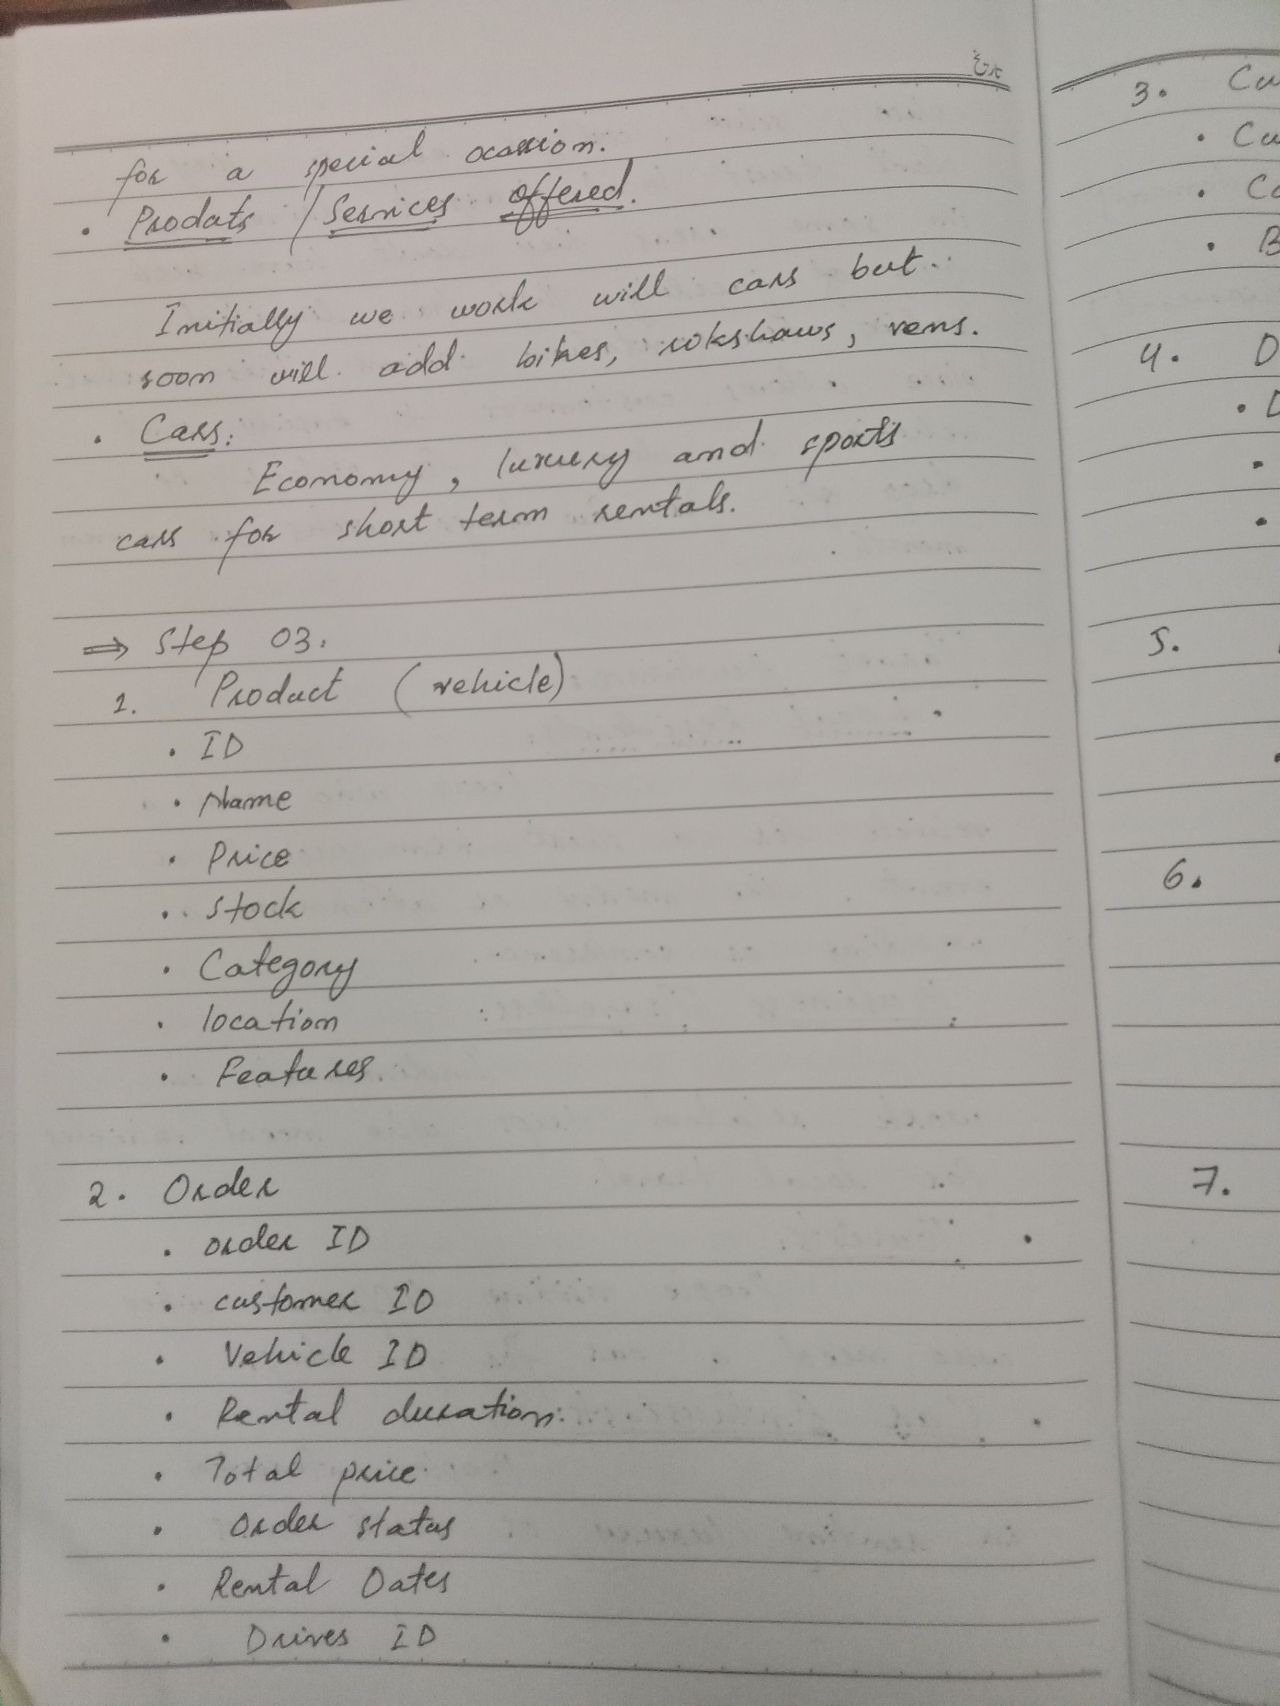 for a special ocassion.
• Prodats / Services offered.
Initially we work will cars but
soon will add bikes, rokshaws, vens.
• Cars:
Economy, luxury and sports
cars for short term rentals.
⇒ Step 03.
1. Product (vehicle)
• ID
• Name
• Price
• Stock
• Category
• location
• Features.
2. Order
• order ID
• customer ID
• Vehicle ID
• Rental duration.
• Total price
• Order status
• Rental Dates
• Drives ID
3. Cu
• Cu
• Co
• B
4. D
• D
5.
6.
7.